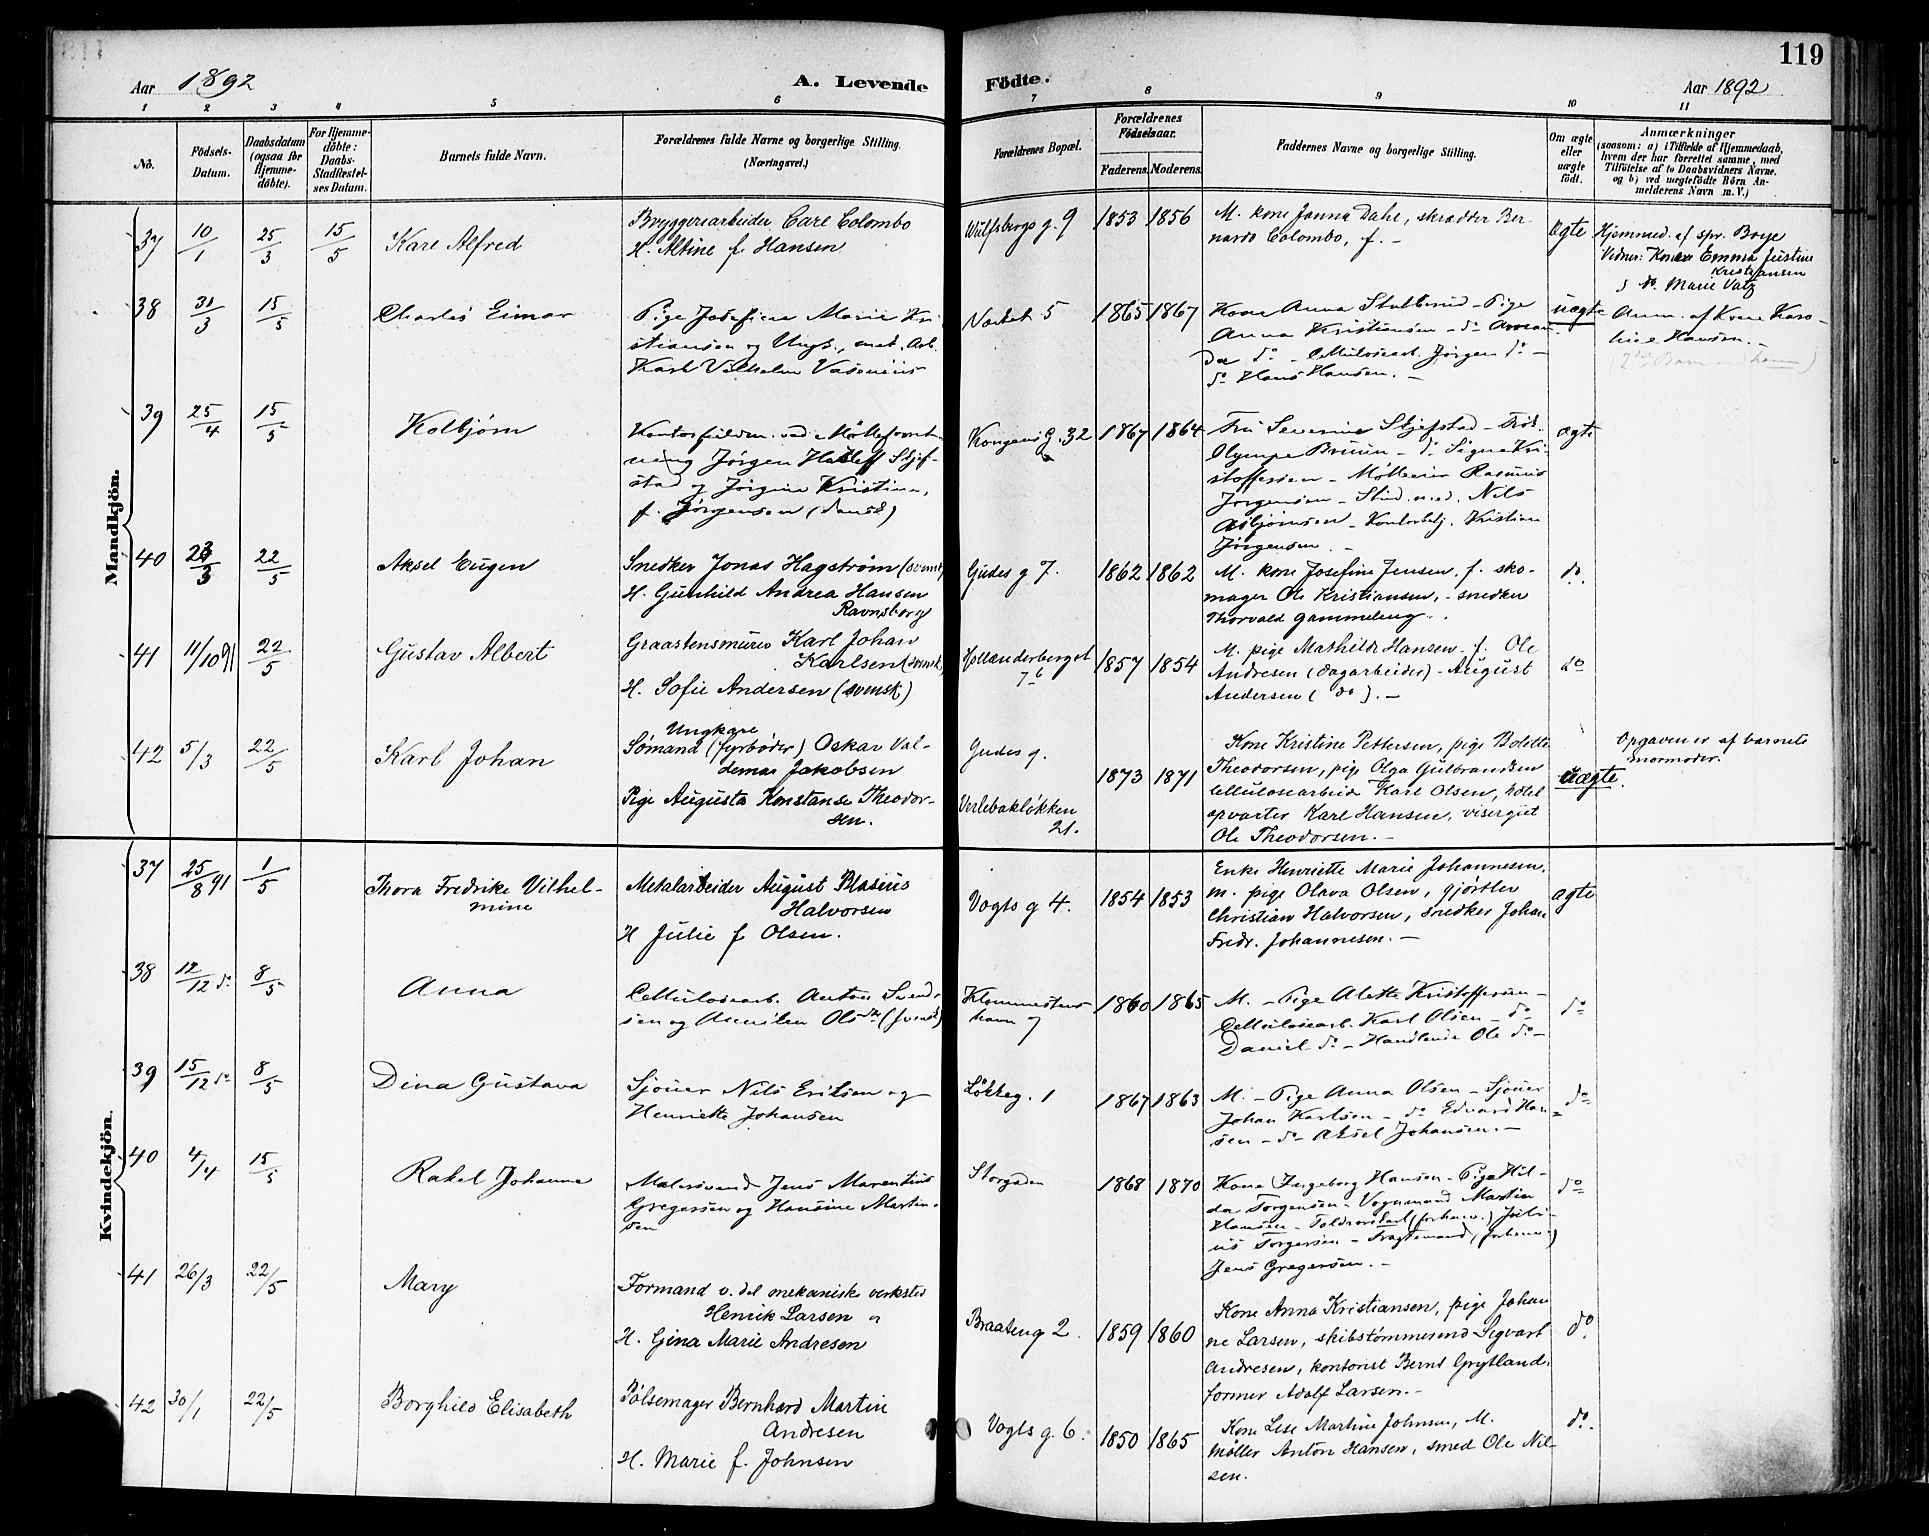 119
Aar 1892
A. Levende
Födte.
Aar 1892
1 2 3 4 5 6 7 8 9 10 11
No.
Födsels-
Datum.
Daabsdatum
(ogsaa för
Hjemme-
döbte).
For Hjemme-
döbte:
Daabs-
Stadfestel-
ses Datum.
Barnets fulde Navn.
Forældrenes fulde Navne og borgerlige Stilling.
(Næringsvei.)
Forældrenes Bopæl.
Forældrenes
Födselsaar.
Faderens.
Moderens.
Faddernes Navne og borgerlige Stilling.
Om ægte
eller
uægte
födt.
Anmærkninger
(saasom: a) i Tilfælde af Hjemmedaab,
hvem der har forrettet samme, med
Tilföielse af to Daabsvidners Navne,
og b) ved uægtefödte Börn An-
melderens Navn m. V.)
Mandkjön.
37 10/1 25/3 15/5 Karl Alfred
Bryggeriarbeider Carl Colombo
H. Altine f. Hansen
Wulfsbergs g. 9 1853 1856
M. kone Janna Dahl, skrædder Ber-
nardo Colombo, f. –
Ægte
Hjemmed. af spr. Boye
Vidner: Kone Emma Justine
Kristiansen
Marie Vatz
38 31/3 15/5 Charles Eimar
Pige Josefine Marie Kri-
stiansen og Ungk., met. Arb.
Karl Vilhelm Vasenius
Næstet 5 1865 1867
Kone Anna Stubberud – Pige
Anna Kristiansen – do
da do – Cellulosearb. Jørgen do –
do Hans Hansen. –
uægte
Anm. af Kone Karo-
line Hansen. –
39 25/4 15/5 Kolbjørn
Kontorfuldm. ved Mølleforret-
ning Jørgen Hatleff Skjef-
stad og Jørgine Kristine,
f. Jørgensen (dansk)
Kongens g. 32 1867 1864
Fru Severine Skjefstad – Frøk.
Olympe Bruun – do Signe Kri-
stoffersen – Mølleeier Rasmus
Jørgensen – Stud. med. Nils
Asbjørnsen – Kontorbetj. Kristian
Jørgensen. –
ægte
40 23/3 22/5 Aksel Eugen
Snedker Jonas Hagstrøm (svensk)
H. Gunhild Andrea Hansen
Ravnsborg
Gudes g 7. 1862 1862
M. kone Josefine Jensen, f. sko-
mager Ole Kristiansen, – snedker
Thorvald Gammeleng. –
do.
41 11/10 91 22/5 Gustav Albert
Graastensmurer Karl Johan
Karlsen (svensk)
H. Sofie Andersen (svensk)
Hollenderberget
7 b 1857 1854
M. pige Mathilde Hansen – f. Ole
Andresen (dagarbeider) – August
Andersen (do). –
do
42 5/3 22/5 Karl Johan
Ungkarl
Sømand (fyrbøder) Oskar Val-
demar Jakobsen
Pige Augusta Konstanse Theodor-
sen.
Gudes g.
Verlebakløkken
21.
1873 1871
Kone Kristine Pettersen, pige Bolette
Theodorsen, pige Olga Gulbrandsen
cellulosearbeider Karl Olsen, hotel
opvarter Karl Hansen, visergut
Ole Theodorsen. –
Uægte.
Opgaven er af barnets
mormoder.
Kvindekjön.
37 25/8 91 1/5 Thora Fredrike Vilhel-
mine
Metalarbeider August Blasius
Halvorsen
H Julie f Olsen.
Vogts g 4. 1854 1853
Enke Henriette Marie Johannesen.
m. pige Olava Olsen, gjørtler
Christian Halvorsen, snedker Johan
Fredr. Johannesen. –
ægte
38 12/12 do 8/5 Anna
Cellulosearb. Anton Svend-
sen og Olsdr (svensk)
Klommestens
havn 7 1860 1865
M. – Pige Alette Kristoffersen –
Cellulosearb. Karl Olsen – do
Daniel do – Handlende Ole do –
do
39 15/12 do 8/5 Dina Gustava
Sjouer Nils Eriksen og
Henriette Johansen
Løkkeg. 1 1867 1863
M. – Pige Anna Olsen – Sjouer
Johan Karlsen – do Edvard Han-
sen – do Aksel Johansen. –
do
40 4/4 15/5 Rakel Johanne
Malersvend Jens Marentius
Gregersen og Hansine Martin-
sen
Storgaden 1868 1870
Kone Ingeborg Hansen – Pige Hil-
da Torgersen – Vognmand Martin
Hansen – (forhenv.) Juli-
us Torgersen – Fragtemand (forhenv.)
Jens Gregersen. –
do
41 26/3 22/5 Mary
Formand v. det mekaniske verksted
Henrik Larsen og
H. Gina Marie Andresen
Braateng 2. 1859 1860
Kone Anna Kristiansen, pige Johan
ne Larsen, skibstømmermd Sigvart
Andresen, kontorist Bernt Grytland,
former Adolf Larsen. –
do.
42 30/1 22/5 Borghild Elisabeth
Pølsemager Bernhard Martin
Andresen
H. Marie f. Johnsen
Vogts g. 6. 1850 1865
Kone Lise Martine Johnsen, M.
møller Anton Hansen, smed Ole Nil-
sen.
do.